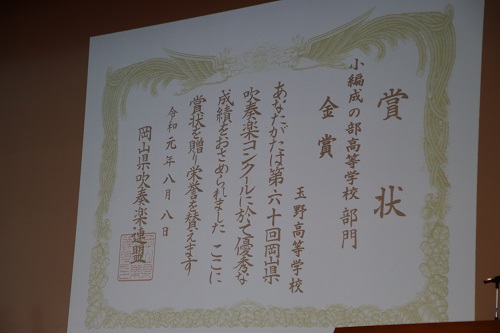 賞状
小編成の部高等学校部門
金賞
玉野高等学校
あなたがたは第六十回岡山県
吹奏楽コンクールに於て優秀な
成績をおさめられました ここに
賞状を贈り栄誉を賛えます
令和元年八月八日
岡山県吹奏楽連盟